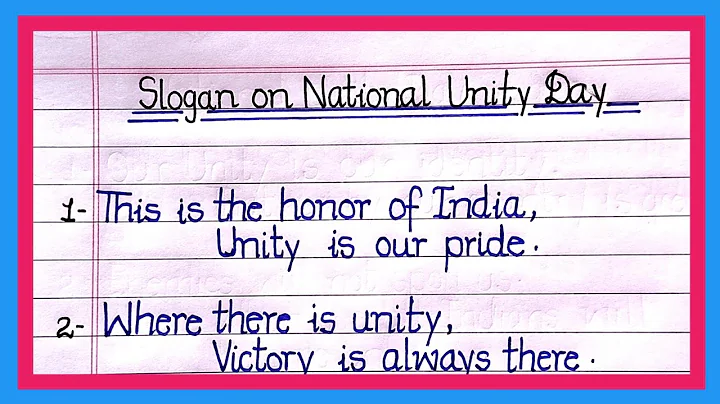 Slogan on National Unity Day
1- This is the honor of India,
Unity is our pride.
2- Where there is unity,
Victory is always there.